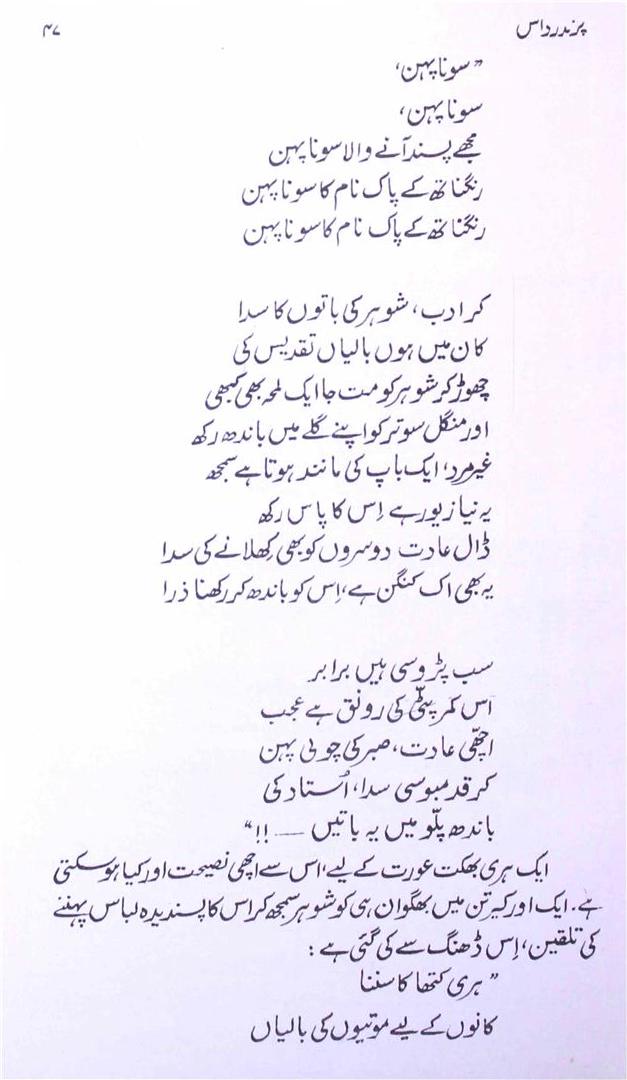 پرندر داس ۴۷
”سونا پہن،
سونا پہن،
مجھے پسند آنے والا سونا پہن
رنگناتھ کے پاک نام کا سونا پہن
رنگناتھ کے پاک نام کا سونا پہن
کر ادب، شوہر کی باتوں کا سدا
کان میں ہوں بالیاں تقدیس کی
چھوڑ کر شوہر کو مت جا ایک لمحہ بھی کبھی
اور منگل سوتر کو اپنے گلے میں باندھ رکھ
غیر مرد، ایک باپ کی مانند ہوتا ہے سمجھ
یہ نیا زیور ہے اِس کا پاس رکھ
ڈال عادت دوسروں کو بھی کھِلانے کی سدا
یہ بھی اک کنگن ہے، اِس کو باندھ کر رکھنا ذرا
سب پڑوسی ہیں برابر
اس کمر پٹّی کی رونق ہے عجب
اچّھی عادت، صبر کی چولی پہن
کر قدمبوسی سدا، اُستاد کی
باندھ پلّو میں یہ باتیں — !!“
ایک ہری بھکت عورت کے لیے، اس سے اچھی نصیحت اور کیا ہو سکتی
ہے۔ ایک اور کیرتن میں بھگوان ہی کو شوہر سمجھ کر اس کا پسندیدہ لباس پہننے
کی تلقین، اِس ڈھنگ سے کی گئی ہے :
”ہری کتھا کا سننا
کانوں کے لیے موتیوں کی بالیاں